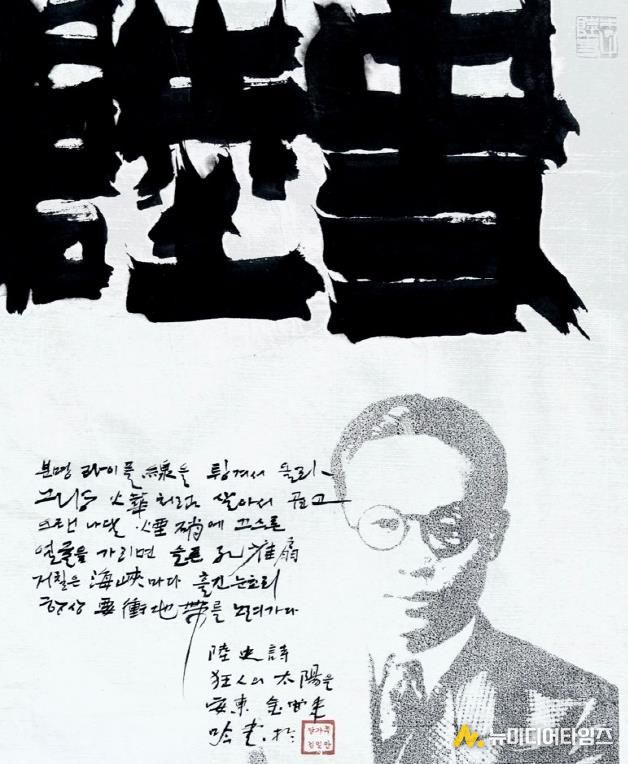 분명 라이플 線을 튕겨서 올라
그냥 火華처럼 살아서 곱고
오랜 나달 煙硝에 끄스른
얼굴을 가리면 슬픈 孔雀扇
거칠은 海峽마다 흘긴 눈초리
항상 要衝地帶를 노려가다
陸史 詩
狂人의 太陽을
安東 金
뉴미디어타임즈